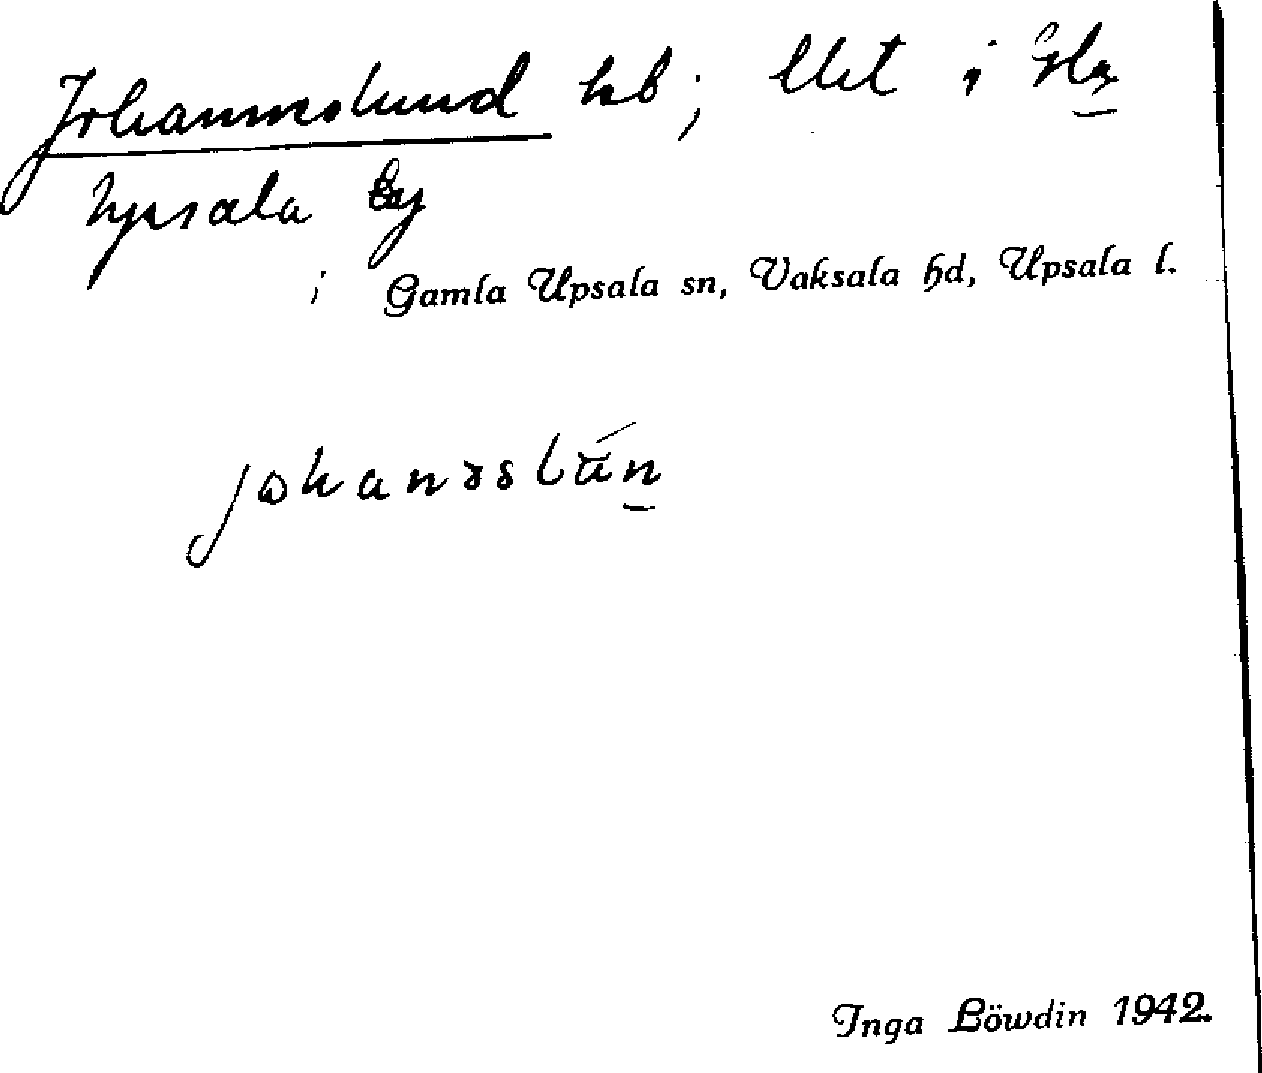 Johanneslund hb; llet i Gla
Upsala by
i Gamla Upsala sn, Vaksala hd, Upsala l.
johanəslún
Inga Löwdin 1942.